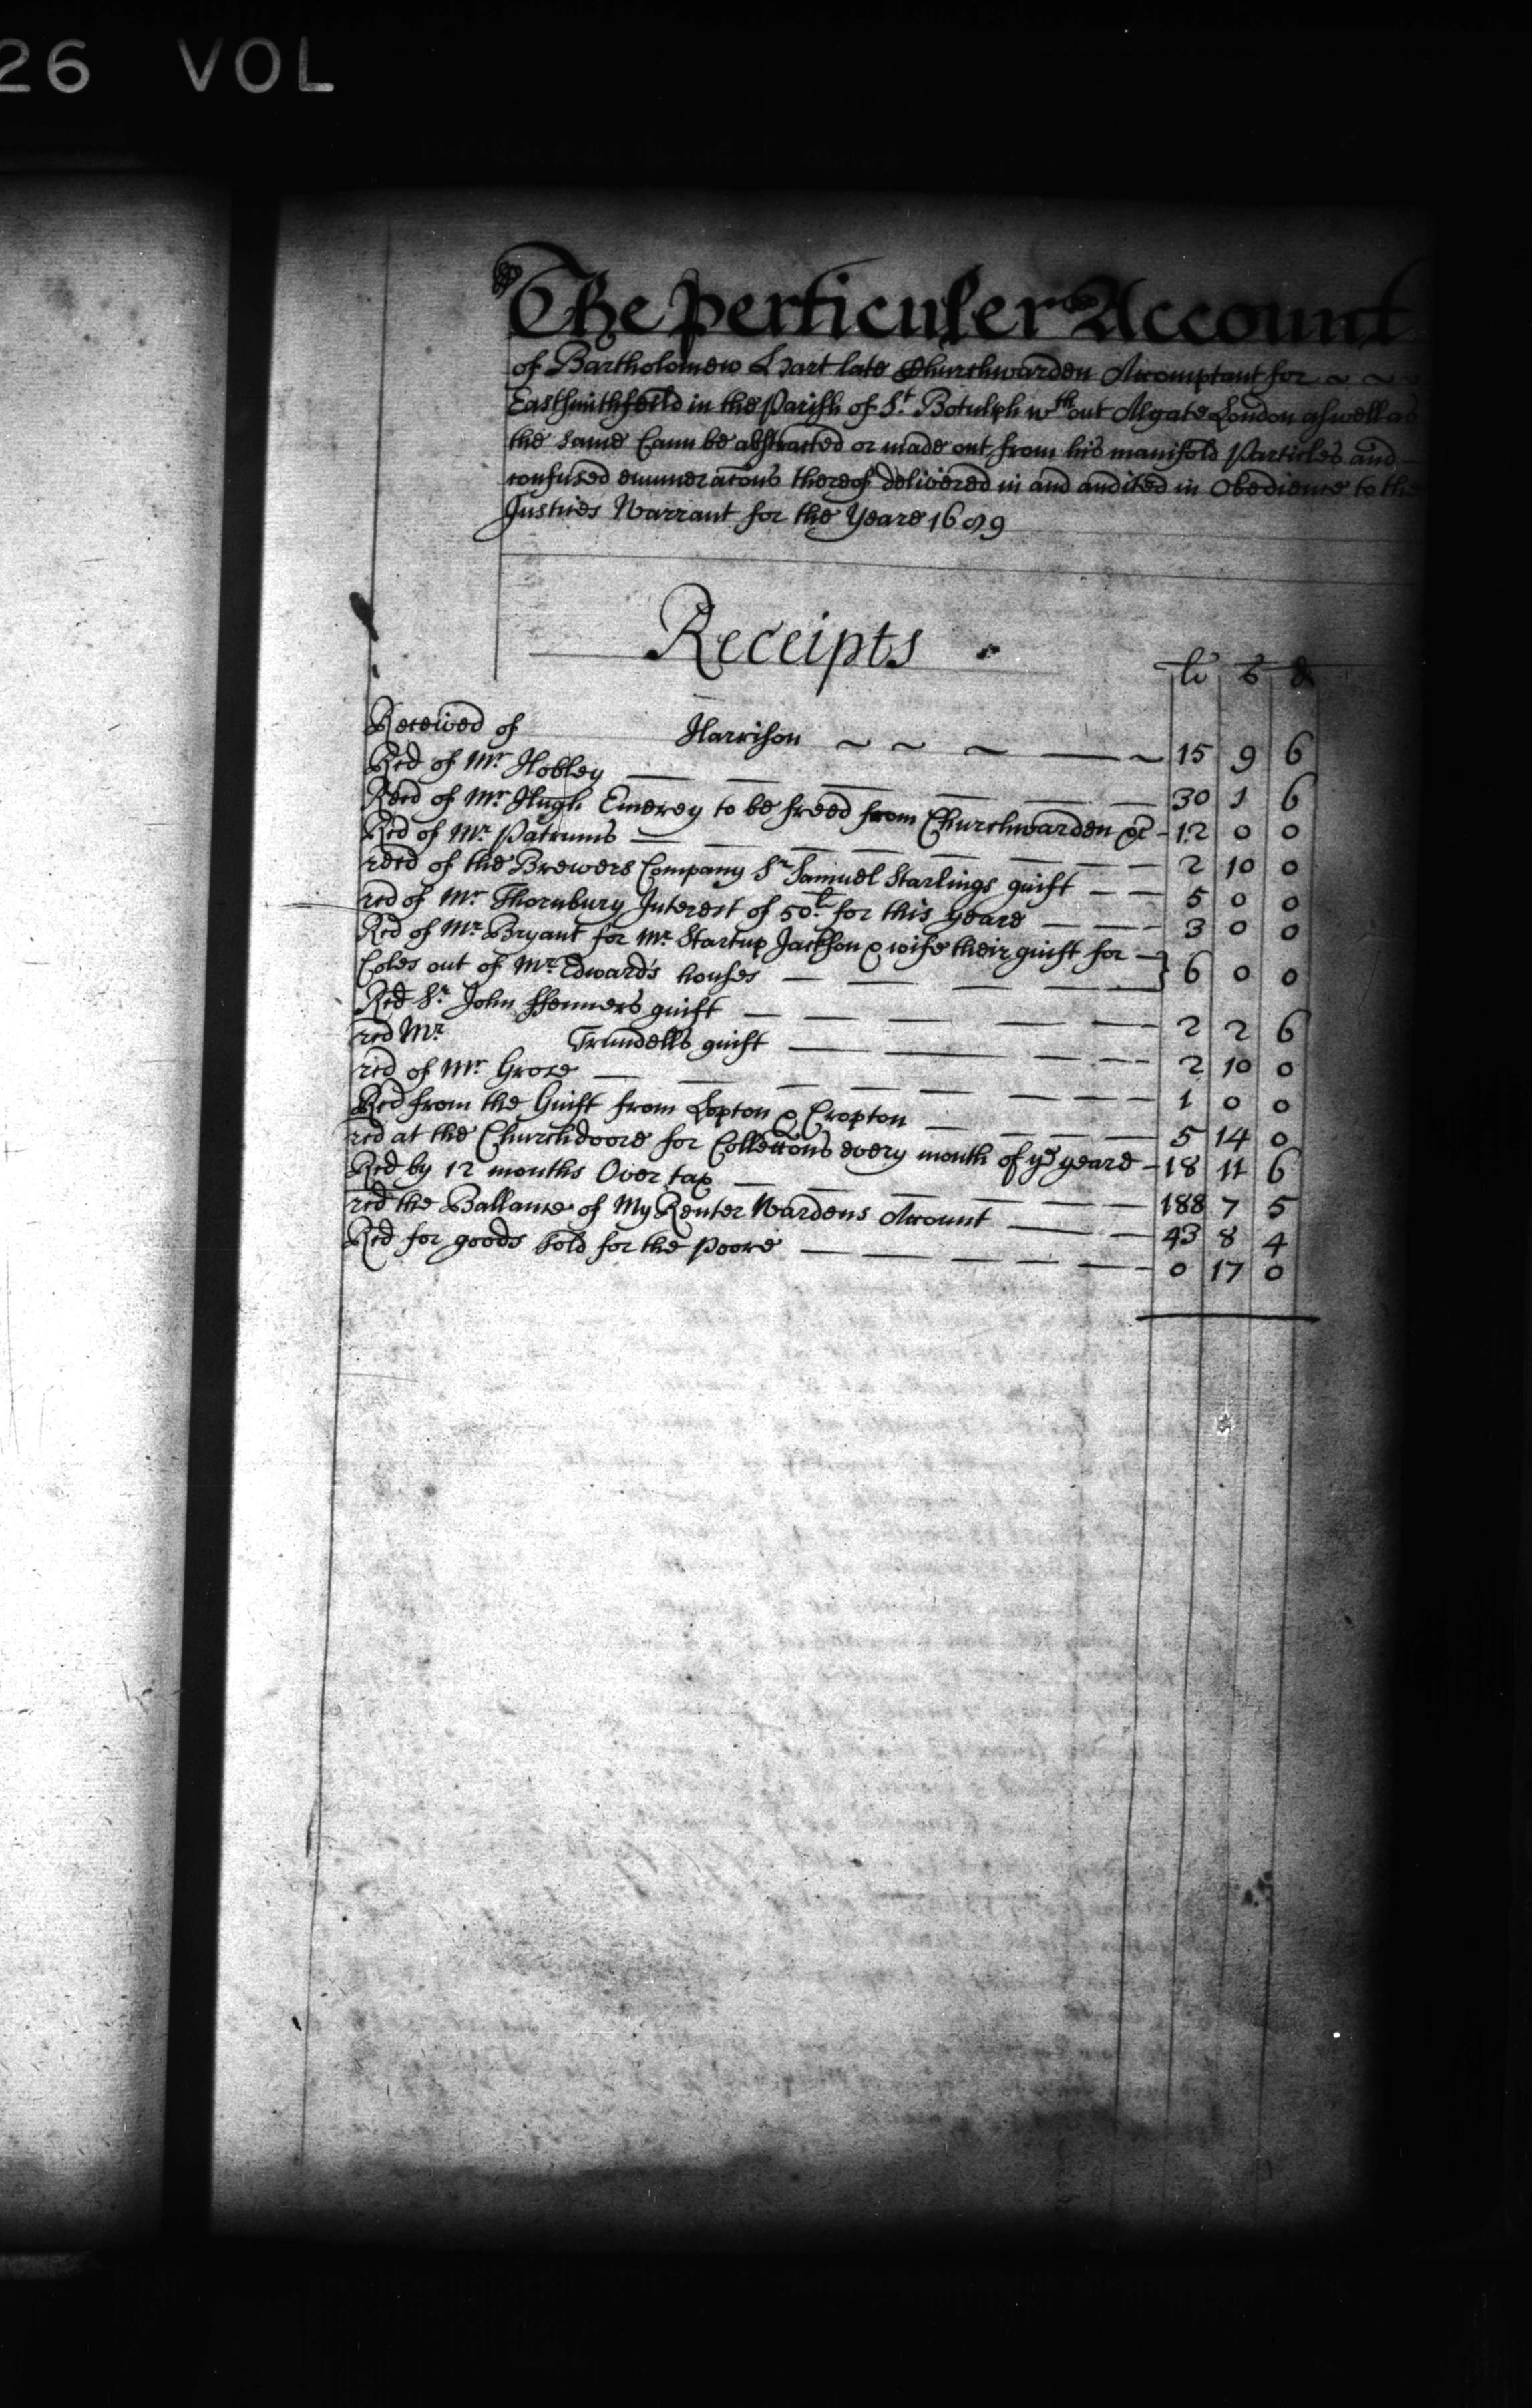 26 VOL
The Perticuler Account
of Bartholomew Hart late Churchwarden Accomptant for ~ ~
Eastsmithfeild in the Parish of St Botulph wthout Algate London aswell as
the same Cann be abstracted or made out from his manifold Particles and
confused enumeracons thereof delivered in and audited in Obedience to the
Justices Warrant for the Yeare 1689
Receipts
li s d
Received of Harrison 15 9 6
Red of Mr Hobley 30 1 6
Recd of Mr Hugh Emerey to be freed from Churchwarden &c 12 0 0
Red of Mr Patrums 2 10 0
recd of the Brewers Company Sr Samuel Starlings guift 5 0 0
red of Mr Thornbury Interest of 50l for this yeare 3 0 0
Red of Mr Bryant for Mr Startup Jackson & wife their guift for
Coles out of Mr Edward's houses 6 0 0
Red Sr John ffenners guift 2 2 6
red Mr Trundells guift 2 10 0
red of Mr Grove 1 0 0
Red from the Guift from Lopton & Cropton 5 14 0
red at the Churchdoore for Collettons every month of ye yeare 18 11 6
Red by 12 months Over tax 188 7 5
red the Ballance of My Renter Wardens Account 43 8 4
Red for goods sold for the Poore 0 17 0